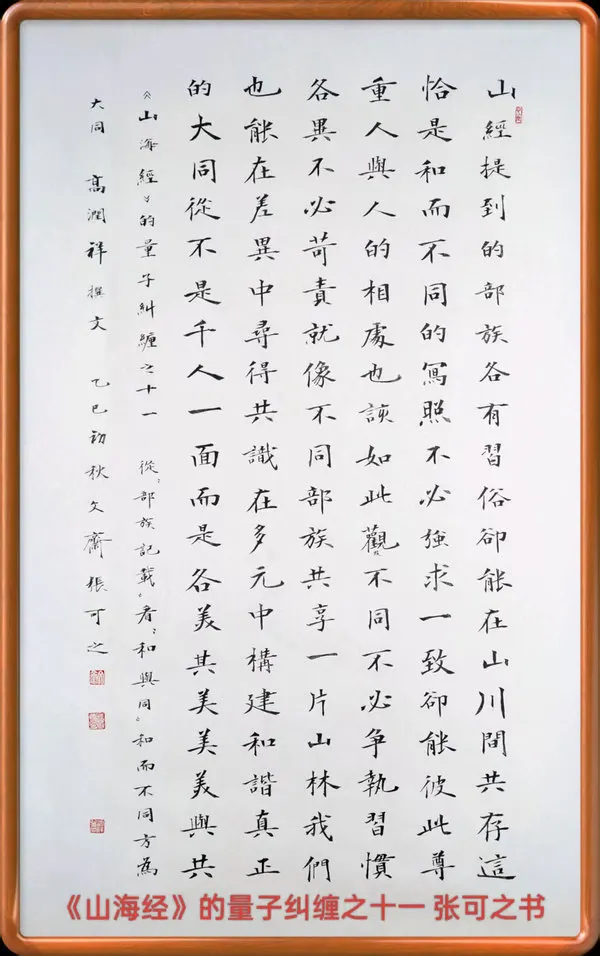 山經提到的部族各有習俗卻能在山川間共存這
恰是和而不同的寫照不必強求一致卻能彼此尊
重人與人的相處也該如此觀不同不必争執習慣
各異不必苛責就像不同部族共享一片山林我們
也能在差異中尋得共識在多元中構建和諧真正
的大同從不是千人一面而是各美其美美美與共
《山海經》的量子糾纏之十一 從“部族記載”看“和與同”和而不同方為
大同 高潤祥撰文 乙巳初秋文齋張可之
《山海经》的量子纠缠之十一 张可之书